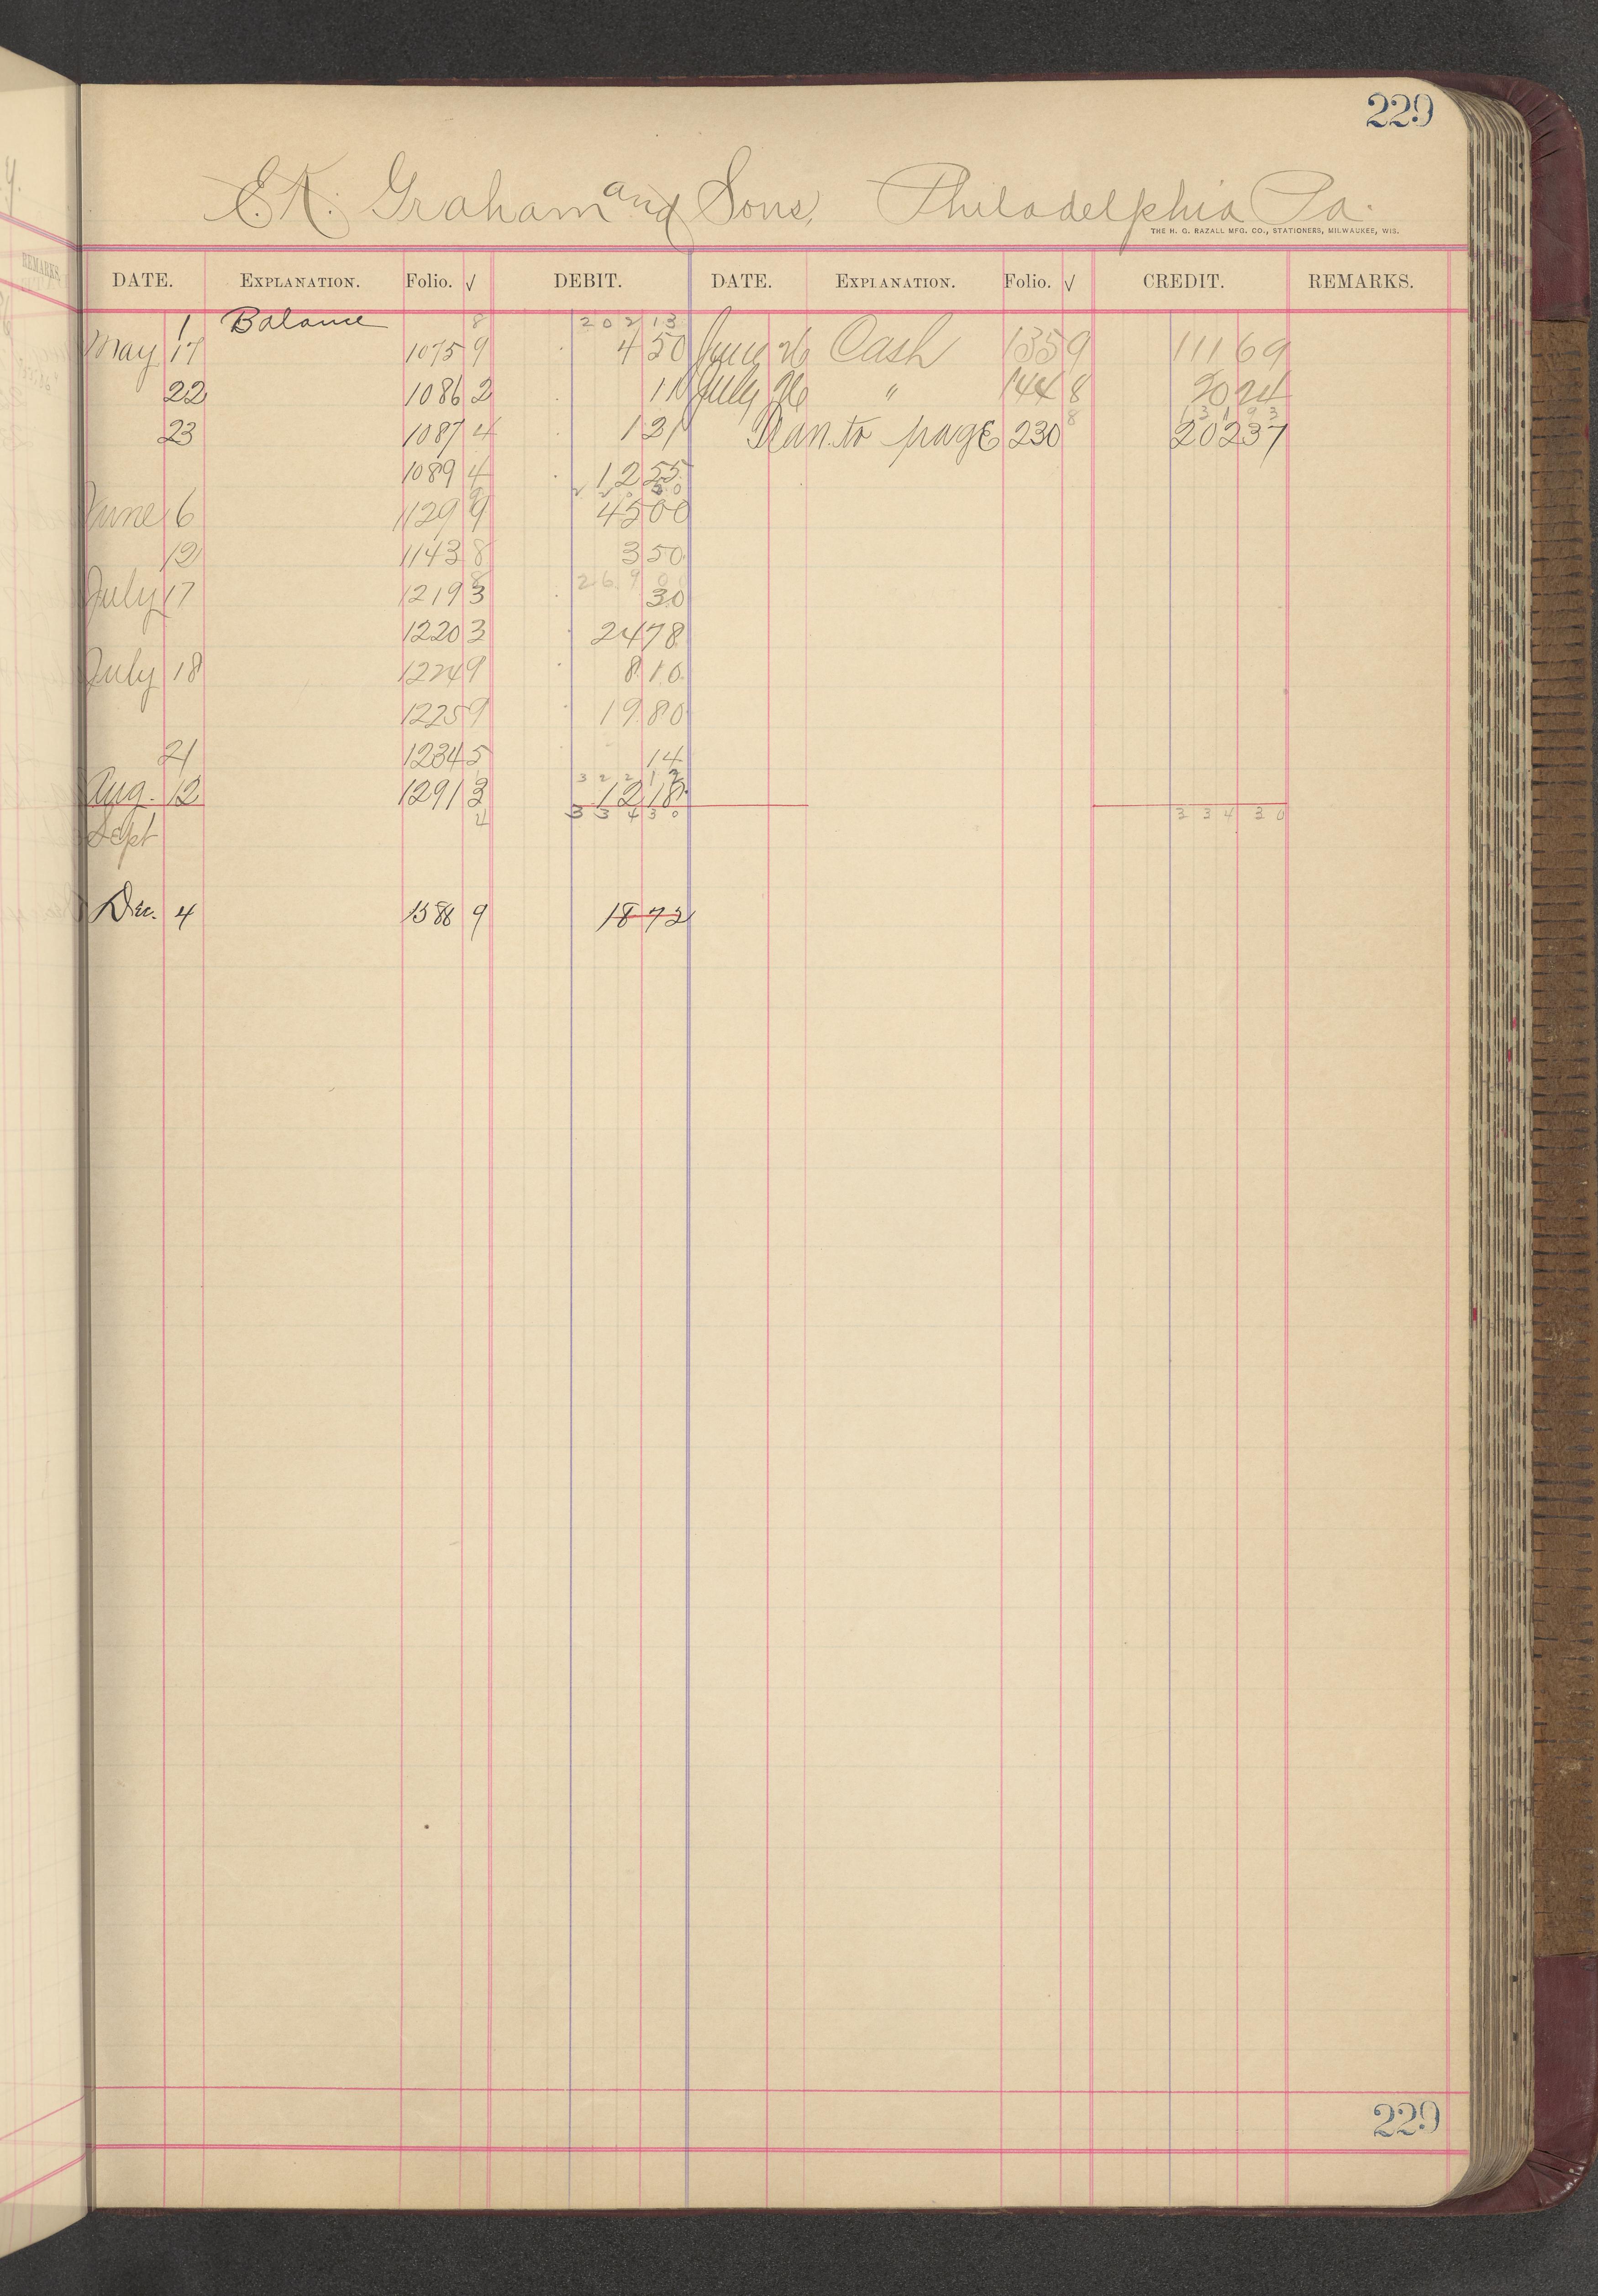 229
E.K. Graham and Sons, Philadelphia Pa.
THE H. G. RAZALL MFG. CO., STATIONERS, MILWAUKEE, WIS.
DATE. EXPLANATION. Folio. √ DEBIT. DATE. EXPLANATION. Folio. √ CREDIT. REMARKS.
1 Balance 8 202 13
May 17 1075 9 4 50 June 26 Cash 135 9 111 69
22 1086 2 11 July 26 " 144 8 20 24
131 93
23 1087 4 1 21 Tran. to page 230 8 202 37
1089 4 12 55
June 6 1129 9 45 00
12 1143 8 3 50
269 0
July 17 1219 3 30
1220 3 24 78
July 18 1224 9 8 10
1225 9 19 80
21 1234 5 14
322 12
Aug. 12 1291 3 12 18
4 334 30 334 30
Sept
Dec. 4 1588 9 18 72
229